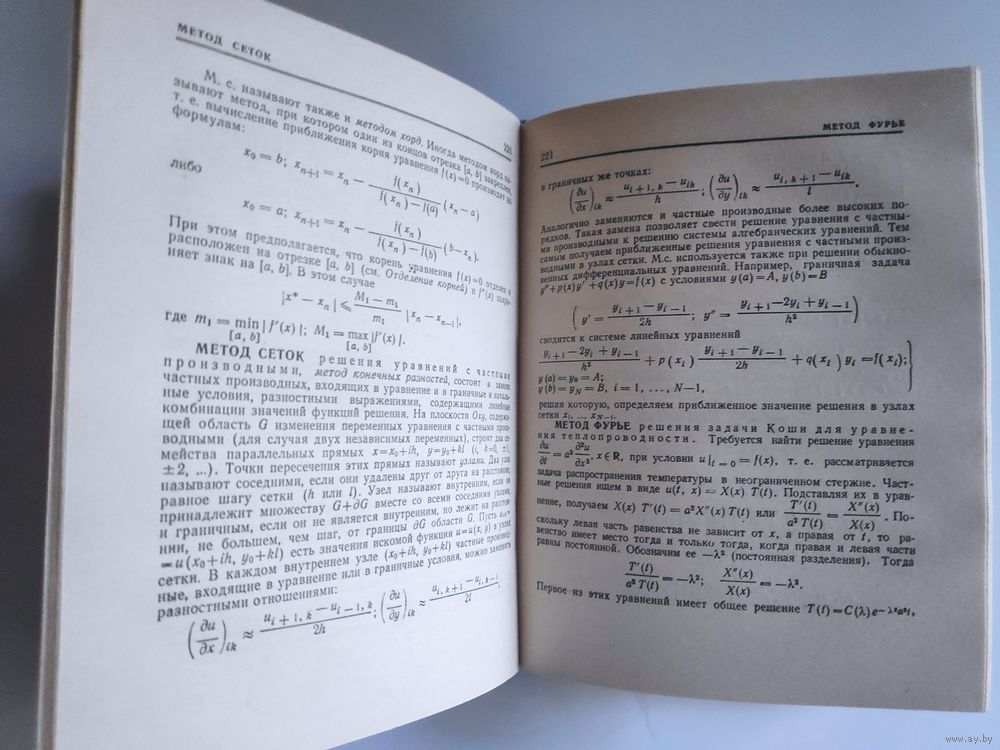 МЕТОД СЕТОК
220
М. с. называют также и методом хорд. Иногда методом хорд на-
зывают метод, при котором один из концов отрезка [a, b] закреплен,
т. е. вычисление приближения корня уравнения f(x)=0 производят по
формулам:
x₀ = b; xₙ₊₁ = xₙ − f(xₙ) / (f(xₙ) − f(a)) (xₙ − a)
либо
x₀ = a; xₙ₊₁ = xₙ − f(xₙ) / (f(xₙ) − f(b)) (b − xₙ).
При этом предполагается, что корень уравнения f(x)=0 отделен и
расположен на отрезке [a, b] (см. Отделение корней) и f″(x) сохра-
няет знак на [a, b]. В этом случае
|x* − xₙ| ⩽ (M₁ − m₁) / m₁ |xₙ − xₙ₋₁|,
где m₁ = min | f′(x) |; M₁ = max |f′(x) |.
[a, b] [a, b]
МЕТОД СЕТОК решения уравнений с частными
производными, метод конечных разностей, состоит в замене
частных производных, входящих в уравнение и в граничные и началь-
ные условия, разностными выражениями, содержащими линейные
комбинации значений функций решения. На плоскости Oxy, содержа-
щей область G изменения переменных уравнения с частными произ-
водными (для случая двух независимых переменных), строят два се-
мейства параллельных прямых x=x₀+ih, y=y₀+kl (i, k=0, ±1,
±2, ...). Точки пересечения этих прямых называют узлами. Два узла
называют соседними, если они удалены друг от друга на расстояние,
равное шагу сетки (h или l). Узел называют внутренним, если он
принадлежит множеству G+∂G вместе со всеми соседними узлами,
и граничным, если он не является внутренним, но лежит на расстоя-
нии, не большем, чем шаг, от границы ∂G области G. Пусть uᵢₖ=
=u(x₀+ih, y₀+kl) есть значения искомой функции u=u(x, y) в узлах
сетки. В каждом внутреннем узле (x₀+ih, y₀+kl) частные производ-
ные, входящие в уравнение или в граничные условия, можно заменить
разностными отношениями:
(∂u/∂x)ᵢₖ ≈ (uᵢ₊₁, ₖ − uᵢ₋₁, ₖ) / 2h; (∂u/∂y)ᵢₖ ≈ (uᵢ, ₖ₊₁ − uᵢ, ₖ₋₁) / 2l,
221
МЕТОД ФУРЬЕ
в граничных же точках:
(∂u/∂x)ᵢₖ ≈ (uᵢ₊₁, ₖ − uᵢₖ) / h; (∂u/∂y)ᵢₖ ≈ (uᵢ, ₖ₊₁ − uᵢₖ) / l.
Аналогично заменяются и частные производные более высоких по-
рядков. Такая замена позволяет свести решение уравнения с частны-
ми производными к решению системы алгебраических уравнений. Тем
самым получаем приближенные решения уравнения с частными произ-
водными в узлах сетки. М.с. используется также при решении обыкно-
венных дифференциальных уравнений. Например, граничная задача
y″+p(x)y′ +q(x)y=f(x) с условиями y(a)=A, y(b)=B
( y′ = (yᵢ₊₁ − yᵢ₋₁) / 2h; y″ = (yᵢ₊₁ − 2yᵢ + yᵢ₋₁) / h² )
сводится к системе линейных уравнений
(yᵢ₊₁ − 2yᵢ + yᵢ₋₁) / h² + p(xᵢ) (yᵢ₊₁ − yᵢ₋₁) / 2h + q(xᵢ) yᵢ = f(xᵢ);
y (a) = y₀ = A;
y (b) = y_N = B, i = 1, ..., N−1,
решая которую, определяем приближенное значение решения в узлах
сетки x₁, ..., x_N₋₁.
МЕТОД ФУРЬЕ решения задачи Коши для уравне-
ния теплопроводности. Требуется найти решение уравнения
∂u/∂t = a² ∂²u/∂x², x ∈ R, при условии u|ₜ₌₀ = f(x), т. е. рассматривается
задача распространения температуры в неограниченном стержне. Част-
ные решения ищем в виде u(t, x) = X(x) T(t). Подставляя их в урав-
нение, получаем X(x) T′(t) = a²X″(x) T(t) или T′(t) / a² T(t) = X″(x) / X(x). По-
скольку левая часть равенства не зависит от x, а правая от t, то ра-
венство имеет место тогда и только тогда, когда правая и левая части
равны постоянной. Обозначим ее −λ² (постоянная разделения). Тогда
T′(t) / a² T(t) = −λ²; X″(x) / X(x) = −λ².
Первое из этих уравнений имеет общее решение T(t)=C(λ)e^(−λ²a²t),
www.ay.by